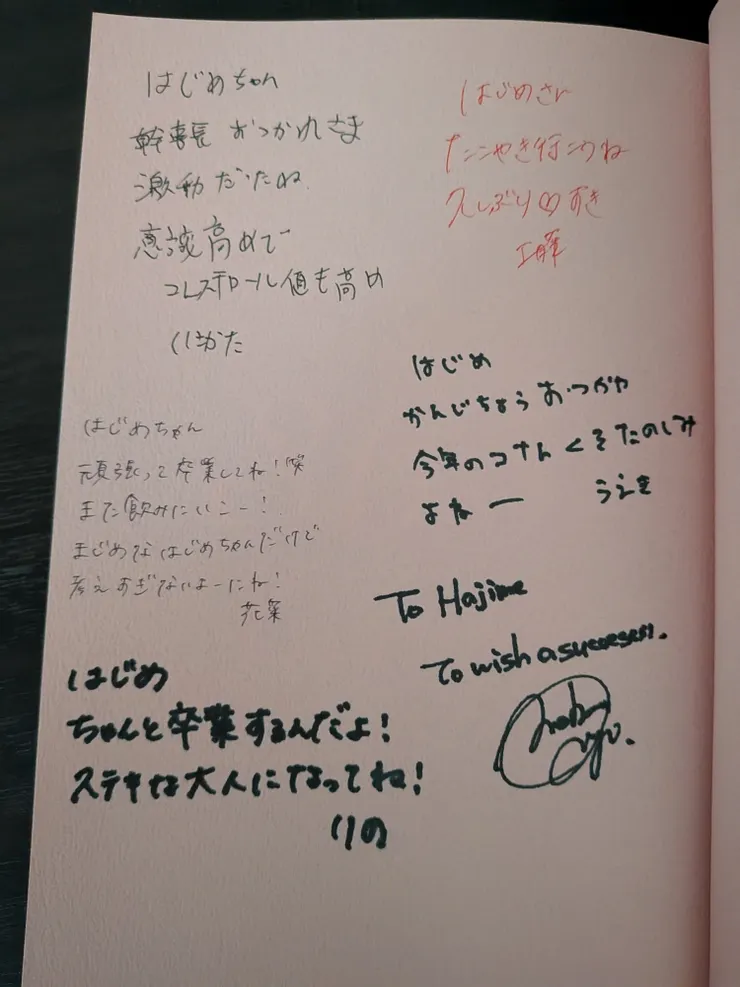 はじめちゃん
幹事長 おつかれさま
激動だったね
意識高めで
コレステロール値も高め
はじめさん
たこやき行こうね
久しぶり♡すき
工藤
はじめ
かんじちょう おつかれ
今年のコナんくそたのしみ
よねー うえき
はじめちゃん
頑張って卒業してね!笑
また飲みにいこー!
まじめなはじめちゃんだけど
考えすぎないよーにね!
花菜
To Hajime
To wish a success.
はじめ
ちゃんと卒業するんだよ!
ステキな大人になってね!
りの